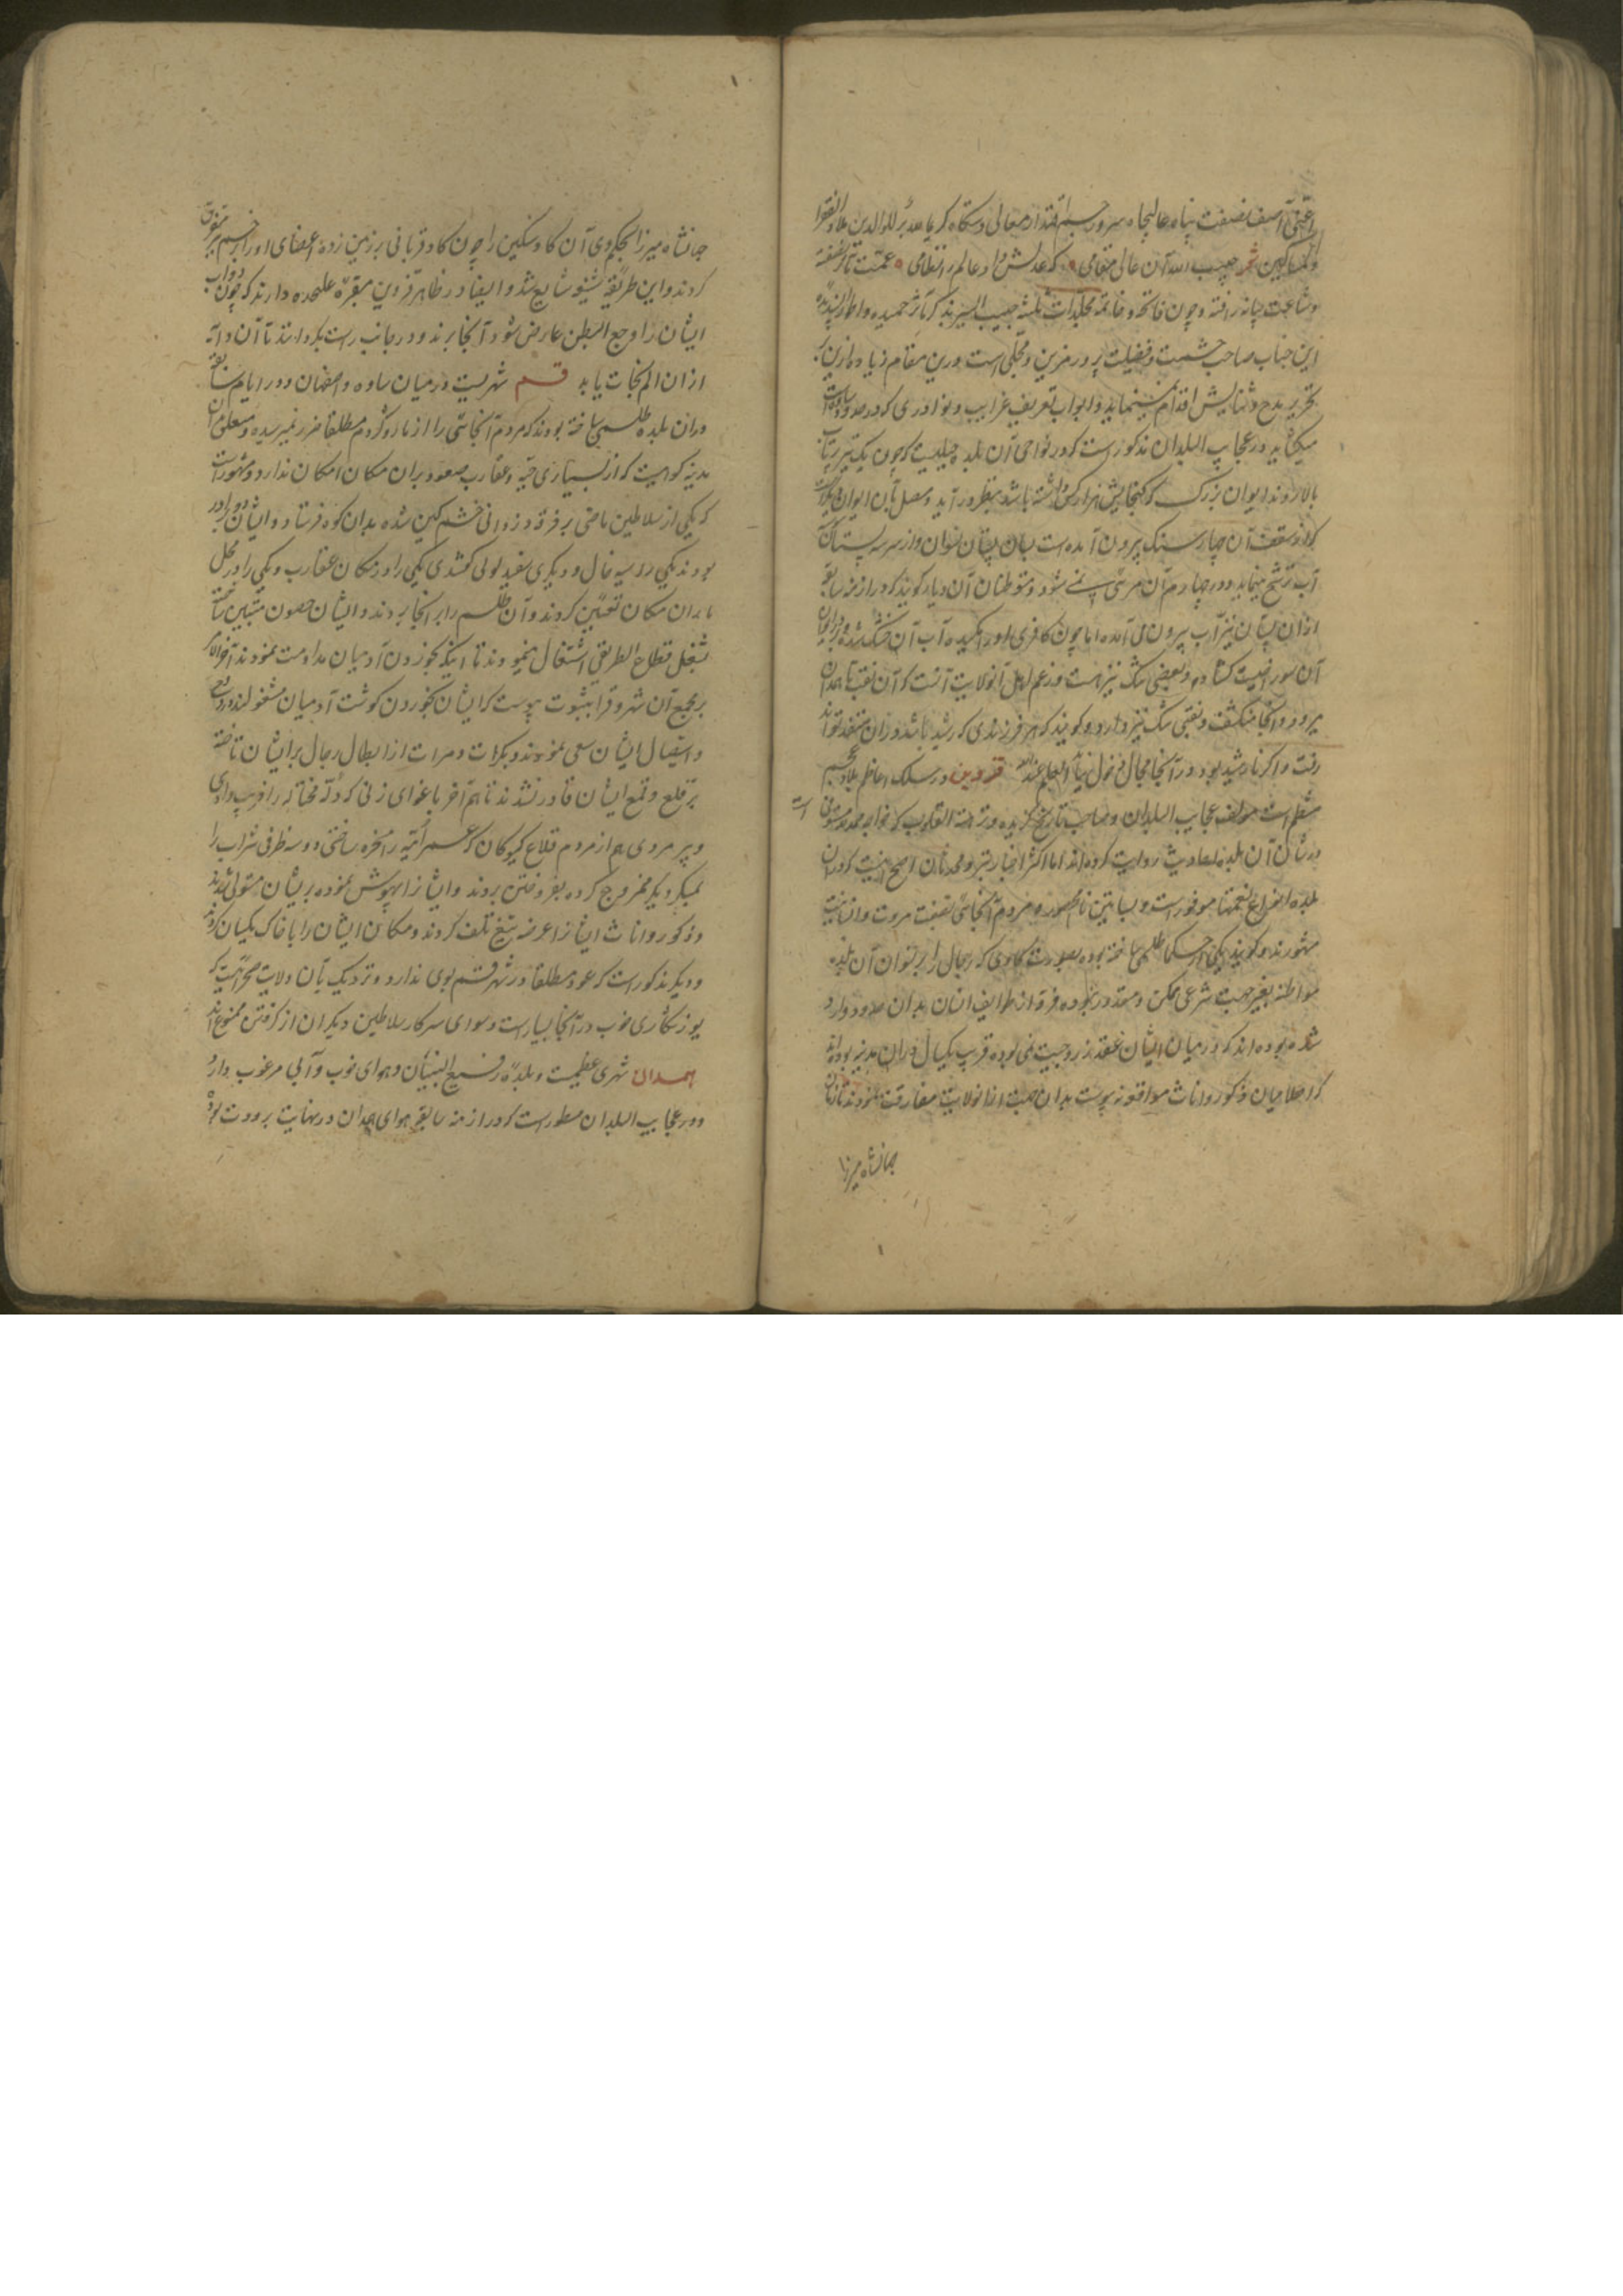 اعنی آصف نصفت پناه عالیجاه سرور جم اقتدار معالی دستگاه کریما
حبیب الله آن عالی مقامی که عدلش داد عالم را نظامی عمت مآثر نصفته
و شاعت و چون فاتحه و خاتمه مجلدات ثلثه حبیب السیر بذکر مآثر حمیده و
این جناب صاحب حشمت و فضیلت پرور مزین و محلی است درین مقام زیاده ازین
بتحریر مدح و ثنایش اقدام نمینماید و ابواب تعریف غرایب و نوادری که در حدود ساوه است
میکشاید در عجایب البلدان مذکورست که در نواحی آن بلده جبلیست که چون یک تیر پرتاب
بالا روند ایوان بزرگ که گنجایش هزار کس داشته باشد بنظر در آید و متصل بآن ایوان
که از سقف آن چهار سنگ بیرون آمده است بسان پستان نسوان و از سر سه پستان
آب ترشح مینماید و در چهارم آن مرئی نمی شود و متوطنان آن دیار گویند که در ازمنه سابقه
ازان پستان نیز آب بیرون می آمده اما چون کافری او را مکیده آب آن خشک شده
آن سوراخیست کشاده و بعضی تنگ نیز هست و زعم اهل آن ولایت آنست که آن نقب تا همدان
میرود و آنجا منکشف و نقبی تنگ نیز دارد و گویند که هر فرزندی که رشید باشد دران منفذ تواند
رفت و اگر نارشید بود در آنجا مجال دخول نیابد العلم عند الله قزوین در سلک اعاظم بلاد عجم
منتظم است مؤلف عجایب البلدان و صاحب تاریخ گزیده و نزهة القلوب که خواجه حمد مستوفی است
در شان آن بلده احادیث روایت کرده اند اما اکثر اخبار بنزد محدثان اصح نیست که دران
بلده انواع نعمتها موفورست و بساتین نامحصور و مردم آنجائی بصفت مروت و انسانیت
مشهورند و گویند یکی از حکما طلسمی ساخته بوده بصورت گاوی که رجال را بر نسوان آن بلده
مواطنه بغیر جهت شرعی ممکن و مقدور نبوده فرقه از طوایف انسان بدان حدود وارد
شده بوده اند که در میان ایشان عقد زوجیت نمی بوده قریب یکسال دران مدینه بوده اند
که اصلا میان ذکور و اناث موافقه نه پیوست بدان جهت ازان ولایت مفارقت نمودند تا زمان
جهانشاه میرزا
جهانشاه میرزا بحکم وی آن گاو سنگین را چون گاو قربانی بر زمین زده اعضای او را از جسم متفرق
کردند و این طریقه شنیعه شایع شد و ایضا در ظاهر قزوین مقبره علیحده دارند که چون دواب
ایشان را وجع البطن عارض شود آنجا برند و در جانب راست بگردانند تا آن دابه
ازان الم نجات یابد قم شهریست در میان ساوه و اصفهان و در ایام سابقه
دران بلده طلسمی ساخته بودند که مردم آنجائی را از مار و کژدم مطلقا ضرر نمیرسیده و متصل آن
مدینه کوهیست که از بسیاری حیه و عقارب صعود بران مکان امکان ندارد و مشهورست
که یکی از سلاطین ماضی بر فرقه دزدانی خشمگین شده بدان کوه فرستاد و ایشان دو برادر
بودند یکی را سیه خال و دیگری سفید لولی گفتندی یکی را در مکان عقارب و یکی را در محل
ماران مکان تعیین کردند و آن طلسم را بر آنجا بردند و ایشان حصون متین ساخته
بشغل قطاع الطریقی اشتغال نمودند تا اینکه بخوردن آدمیان مداومت نمودند آخر الامر
بر مجموع آن شهر و قرا بثبوت پیوست که ایشان بخوردن گوشت آدمیان مشغولند
و استیصال ایشان سعی نمودند و بکرات و مرات از ابطال رجال بر ایشان تاخته
بر قلع و قمع ایشان قادر نشدند تا هم آخر باغوای زنی که دله محتاله را فریب دادی
و پیر مردی هم از مردم قلاع کبرکان که عمر امیه را مسخره ساختی دو سه ظرفی شراب را
بمیکر دیگر ممزوج کرده بفروختن بردند و ایشانرا بیهوش نموده بر ایشان مستولی شدند
و ذکور و اناث ایشانرا عرضه تیغ تلف کردند و مکان ایشان را با خاک یکسان کردند
و دیگر مذکورست که عود مطلقا در شهر قم بوی ندارد و نزدیک بآن ولایت صحرائیست که
یوز شکاری خوب در آنجا بسیارست و سوای سرکار سلاطین دیگران از گرفتن ممنوع اند
همدان شهری عظیمست و بلده فسیح البنیان و هوای خوب و آبی مرغوب دارد
و در عجایب البلدان مسطورست که در ازمنه سابقه هوای همدان در نهایت برودت بود